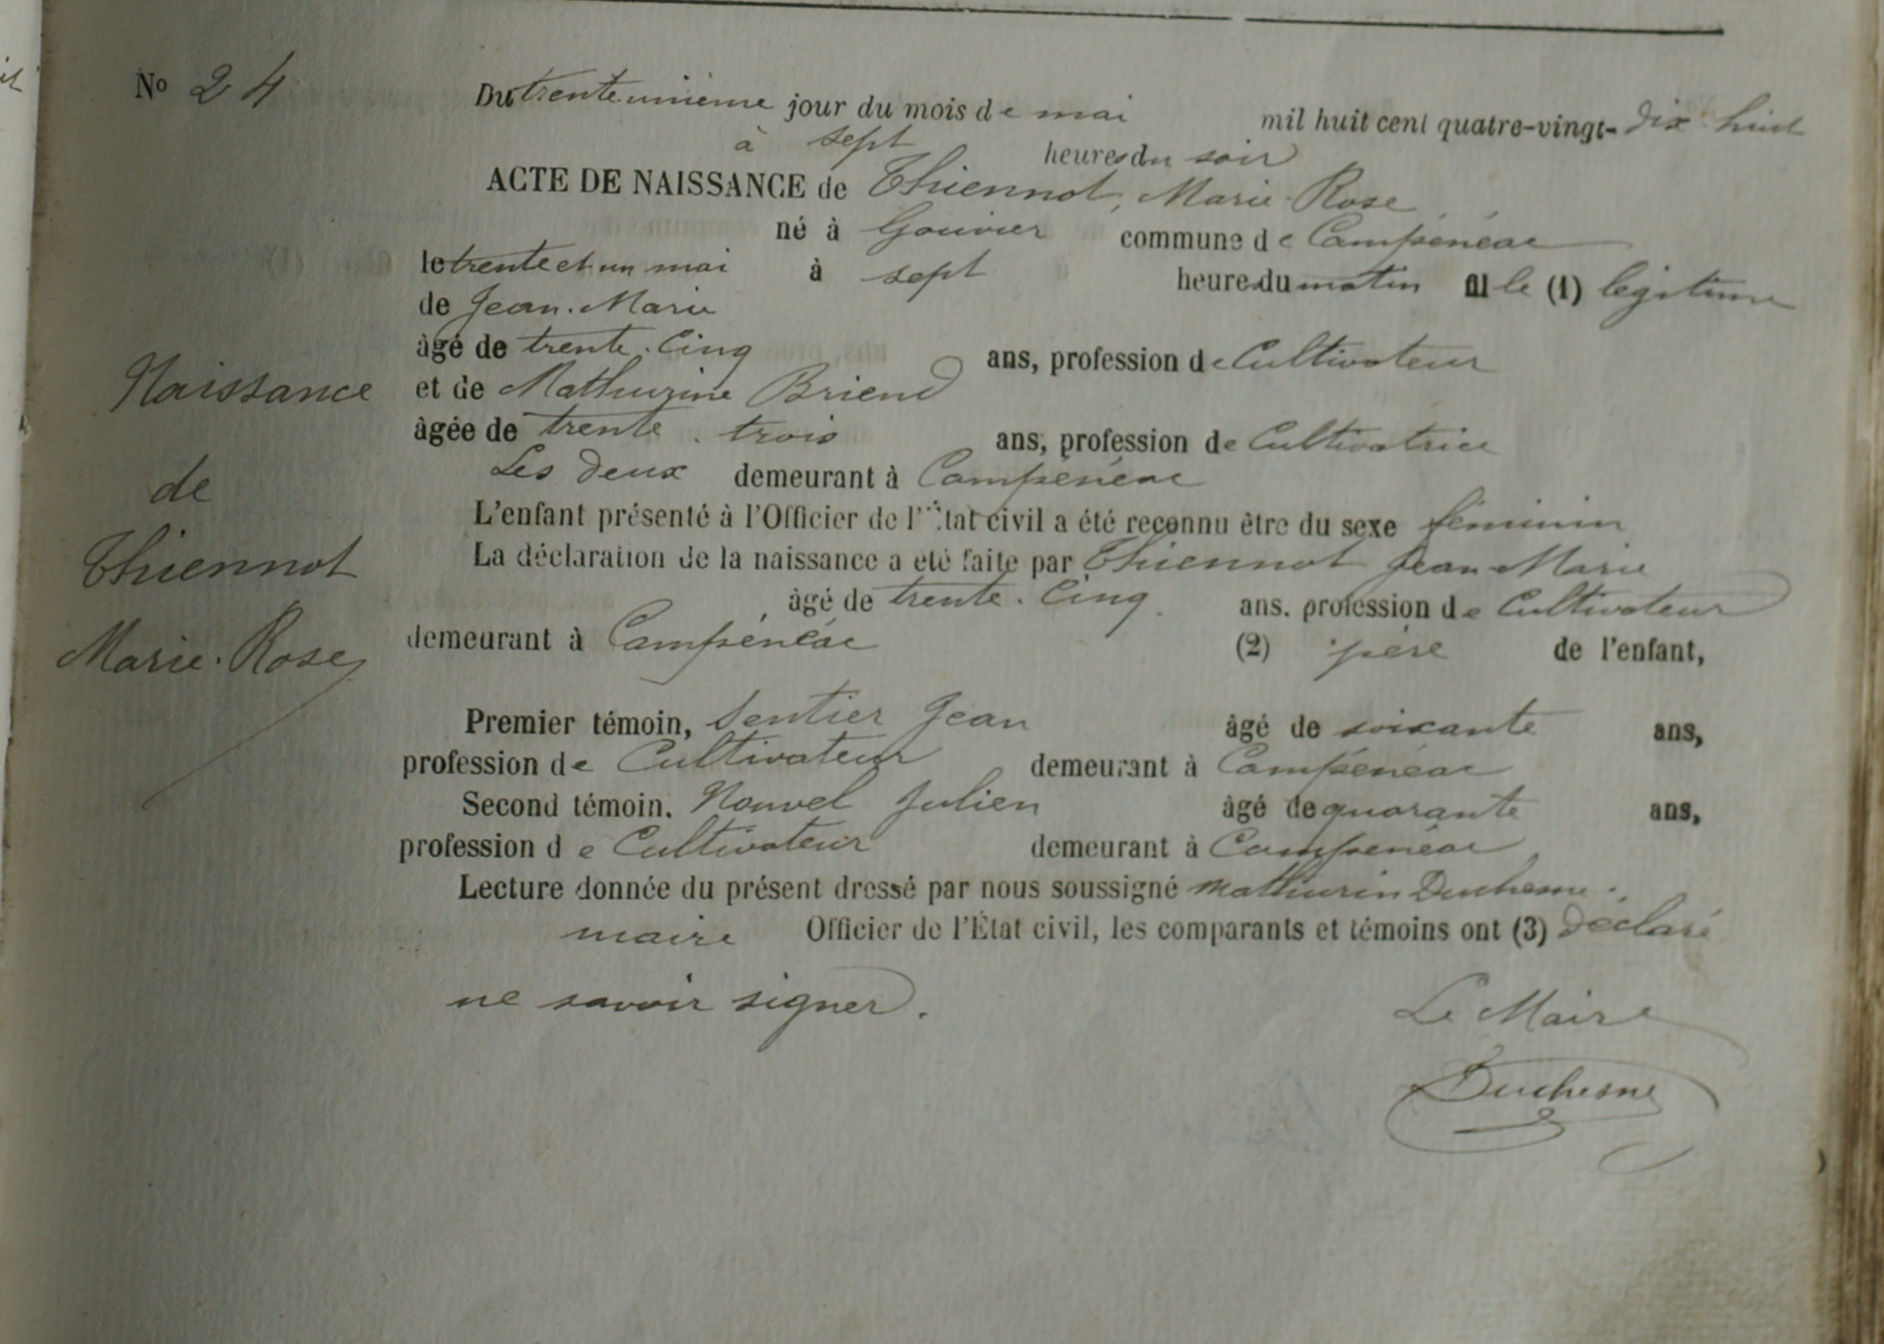 No 24
Du trente unième jour du mois de mai mil huit cent quatre-vingt-dix huit
à sept heures du soir
ACTE DE NAISSANCE de Thiennot, Marie Rose
né à Gouvier commune de Campénéac
le trente et un mai à sept heures du matin fille (1) légitime
de Jean-Marie
âgé de trente-cinq ans, profession de Cultivateur
et de Mathurine Briend
âgée de trente-trois ans, profession de Cultivatrice
Les deux demeurant à Campénéac
L'enfant présenté à l'Officier de l'État civil a été reconnu être du sexe féminin
La déclaration de la naissance a été faite par Thiennot Jean Marie
âgé de trente-cinq ans. profession de Cultivateur
demeurant à Campénéac (2) père de l'enfant,
Premier témoin, Sentier Jean âgé de soixante ans,
profession de Cultivateur demeurant à Campénéac
Second témoin. Nouvel Julien âgé de quarante ans,
profession de Cultivateur demeurant à Campénéac
Lecture donnée du présent dressé par nous soussigné Mathurin Duchesne
maire Officier de l'État civil, les comparants et témoins ont (3) déclaré
ne savoir signer.
Le Maire
Duchesne
Naissance
de
Thiennot
Marie-Rose